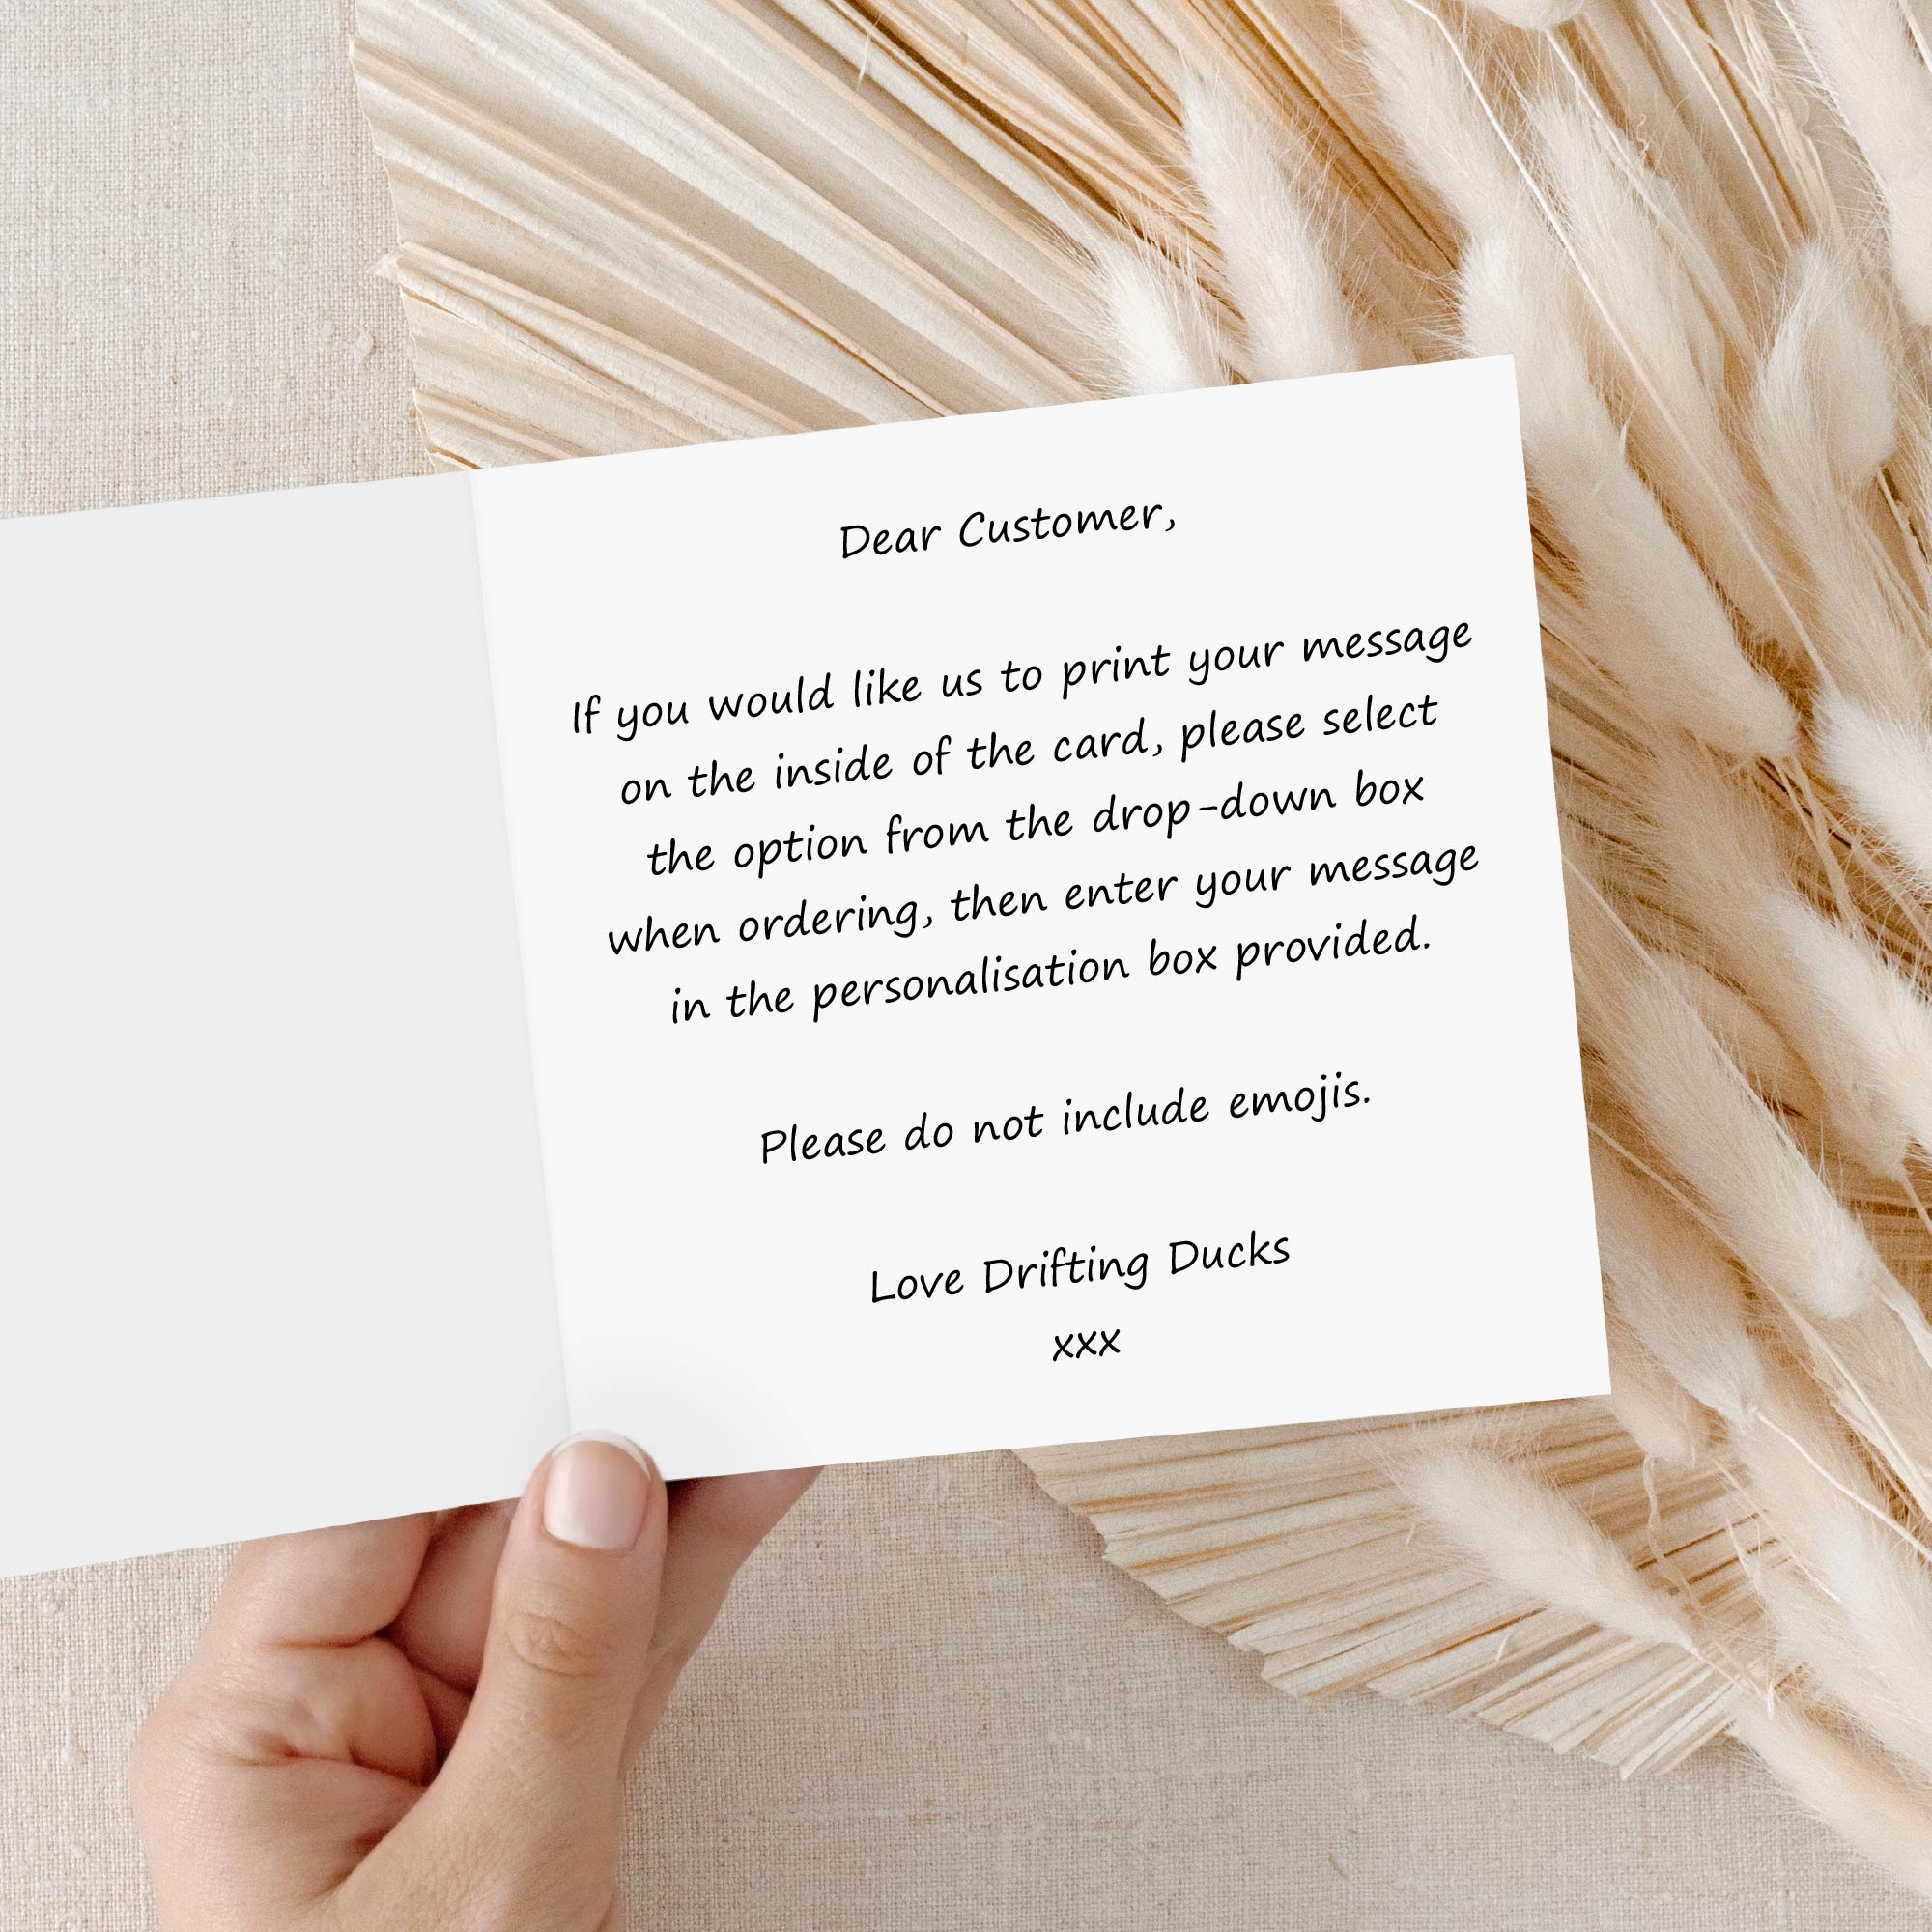 Dear Customer,
If you would like us to print your message
on the inside of the card, please select
the option from the drop-down box
when ordering, then enter your message
in the personalisation box provided.
Please do not include emojis.
Love Drifting Ducks
xxx